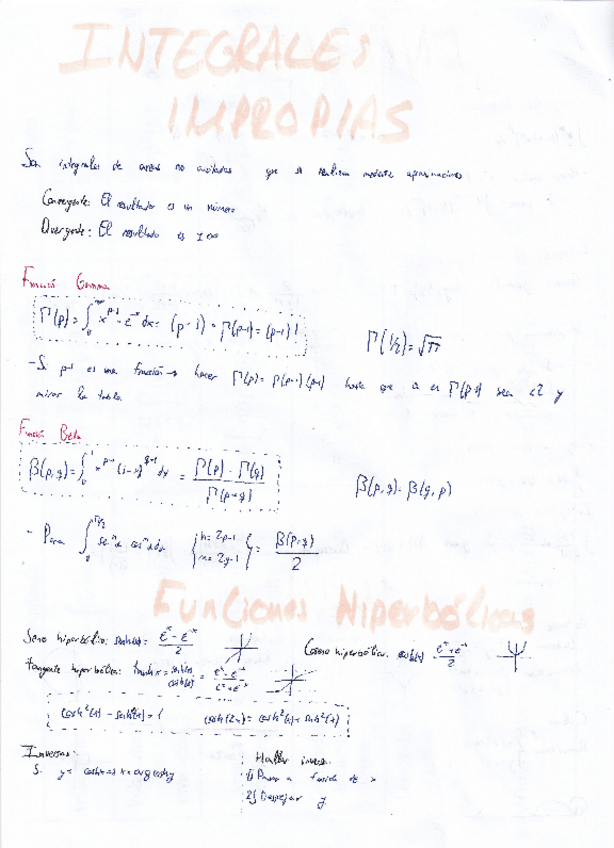 INTEGRALES
IMPROPIAS
Son integrales de areas no acotadas que se realizan mediante aproximaciones
Convergente: El resultado es un número
Divergente: El resultado es ±∞
Función Gamma
Γ(p) = ∫₀^∞ x^(p-1) · e^(-x) dx = (p-1) · Γ(p-1) = (p-1)!
Γ(1/2) = √π
- Si p-1 es una función → hacer Γ(p) = hasta que a en Γ(p) sea <2 y
mirar la tabla
Función Beta
β(p,q) = ∫₀^1 x^(p-1) (1-x)^(q-1) dx = Γ(p) · Γ(q) / Γ(p+q)
β(p,q) = β(q,p)
- Para ∫₀^(π/2) sen^n x cos^m x dx { n = 2p-1 m = 2q-1 } = β(p,q) / 2
Funciones Hiperbólicas
Seno hiperbólico: senh(x) = (e^x - e^-x) / 2
Coseno hiperbólico: cosh(x) = (e^x + e^-x) / 2
Tangente hiperbólica: tanh x = senh(x) / cosh(x) = (e^x - e^-x) / (e^x + e^-x)
cosh²(x) - senh²(x) = 1 cosh(2x) = cosh²(x) + senh²(x)
Inversas:
Si y = cosh x → x = arg cosh y
Hallar inversa
1) Pasar a función de x
2) Despejar y